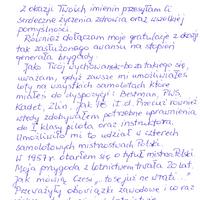 Z okazji Twoich imienin przesyłam Ci
serdeczne życzenia zdrowia oraz wszelkiej
pomyślności.
Również dołączam moje gratulacje z okazji
tak zasłużonego awansu na stopień
generała brygady.
Jako Twój wychowanek bo za takiego się
uważam, gdyż zawsze mi umożliwiałeś
loty na wszystkich samolotach które
miałeś do dyspozycji: Bestman, PWS,
Kadet, Zlin, Jak 18 i t.d. Przecież również
wtedy zdobywałem potrzebne uprawnienia
do I klasy pilota oraz instruktora.
Umożliwiło mi to udział w czterech
samolotowych mistrzostwach Polski.
W 1957 r. otarłem się o tytuł mistrza Polski
Moja przygoda z lotnictwem trwała 20 lat.
Jak mówią Czesi „to se już ne wrati..."
Przeważyły obowiązki zawodowe i co raz